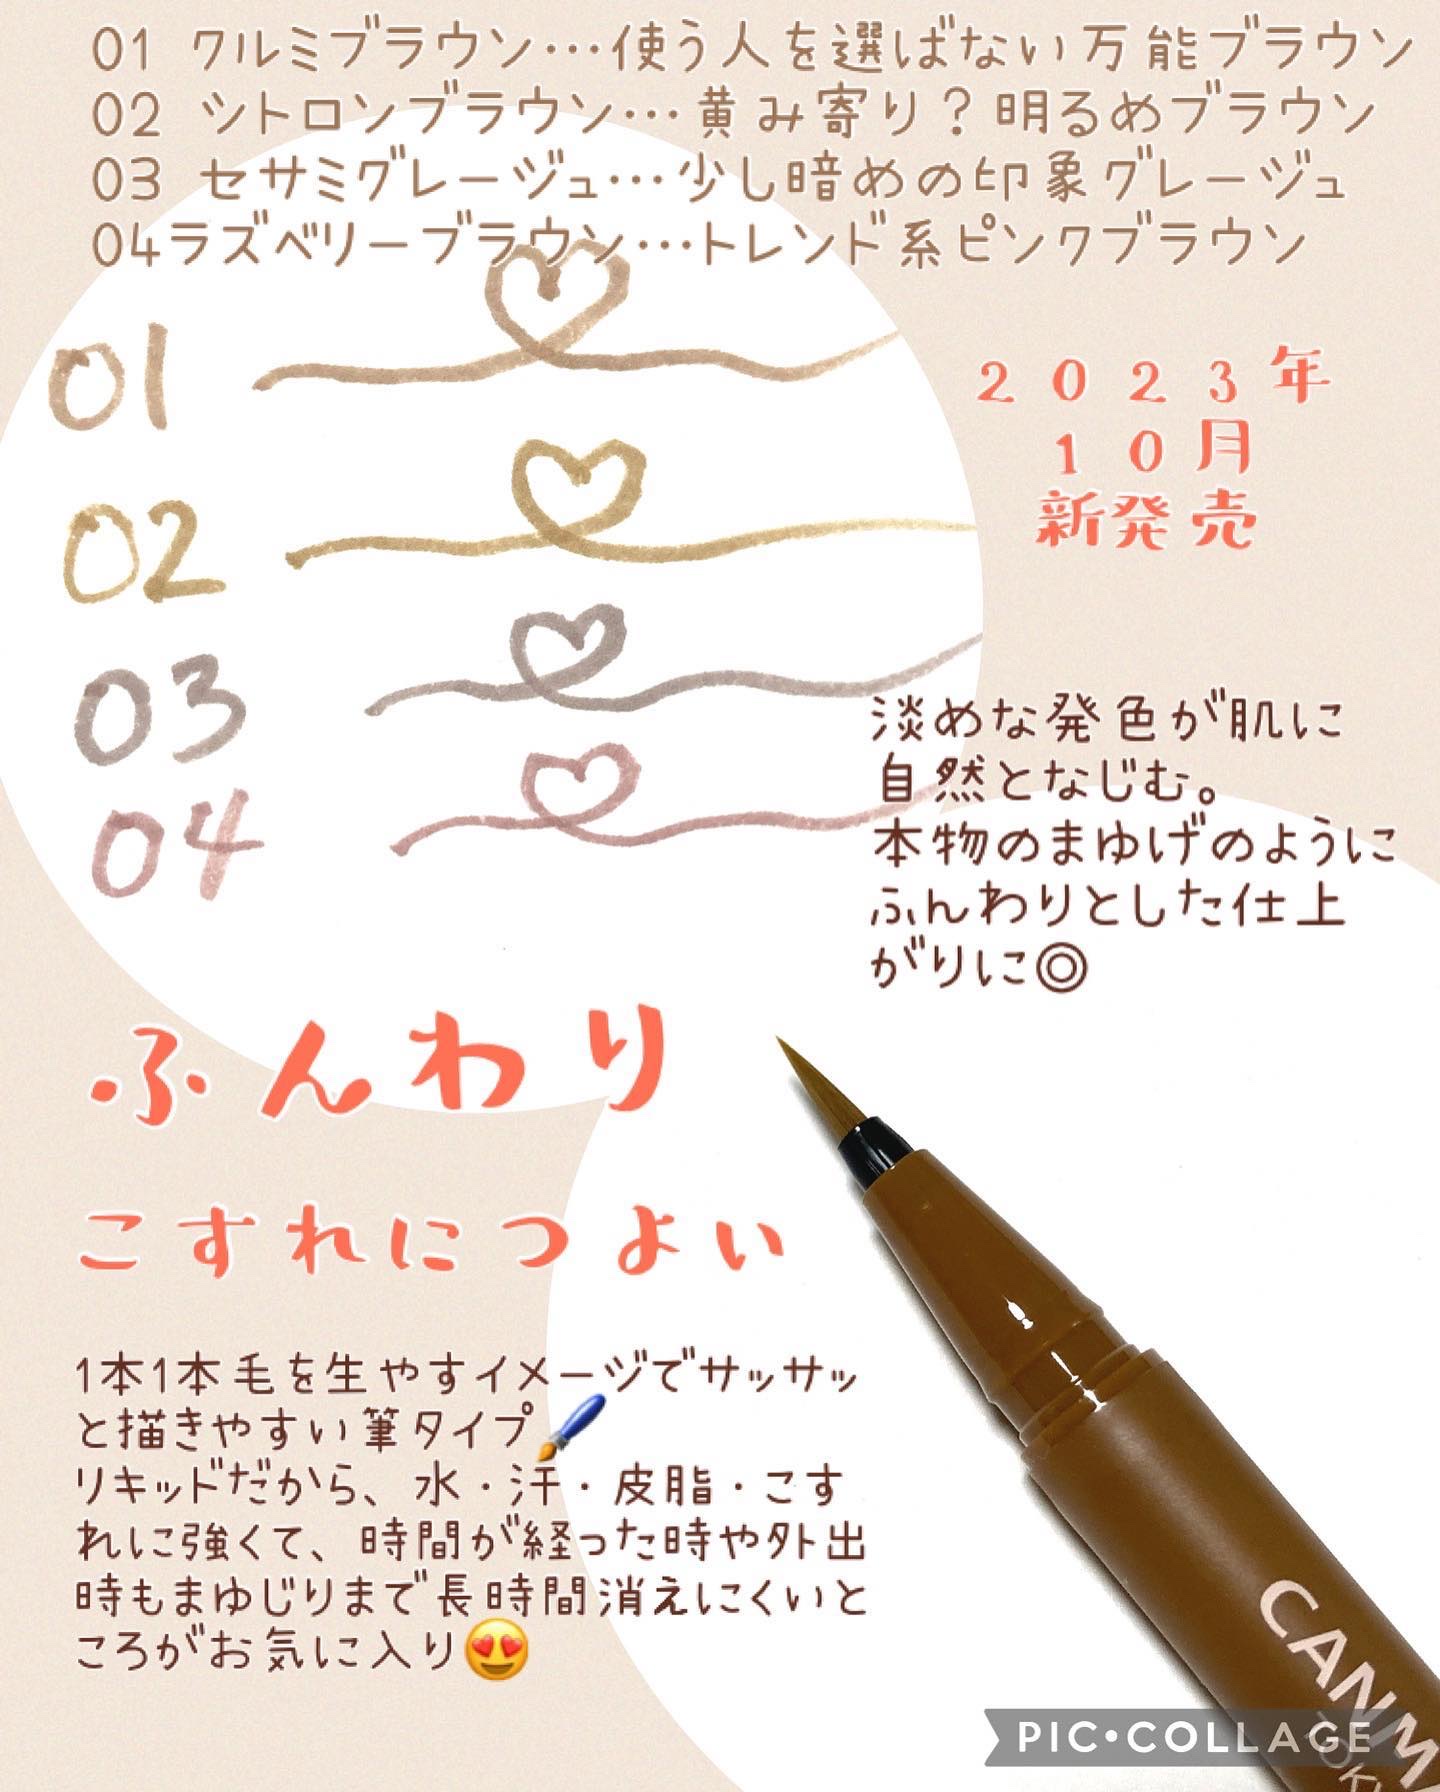 01 クルミブラウン…使う人を選ばない万能ブラウン
02 シトロンブラウン…黄み寄り？明るめブラウン
03 セサミグレージュ…少し暗めの印象グレージュ
04ラズベリーブラウン…トレンド系ピンクブラウン
01
02
03
04
2023年
10月
新発売
淡めな発色が肌に
自然となじむ。
本物のまゆげのように
ふんわりとした仕上
がりに◎
ふんわり
こすれにつよい
1本1本毛を生やすイメージでサッサッ
と描きやすい筆タイプ🖌️
リキッドだから、水・汗・皮脂・こす
れに強くて、時間が経った時や外出
時もまゆじりまで長時間消えにくいと
ころがお気に入り😍
CANM
TOK
PIC•COLLAGE